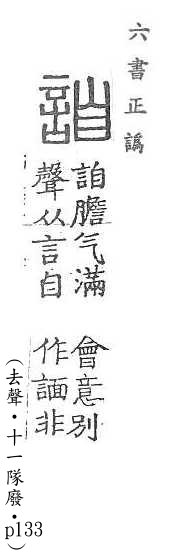 六書正譌
詯
詯膽气滿
聲从言自
會意別
作非
(去聲・十一隊廢・p133)